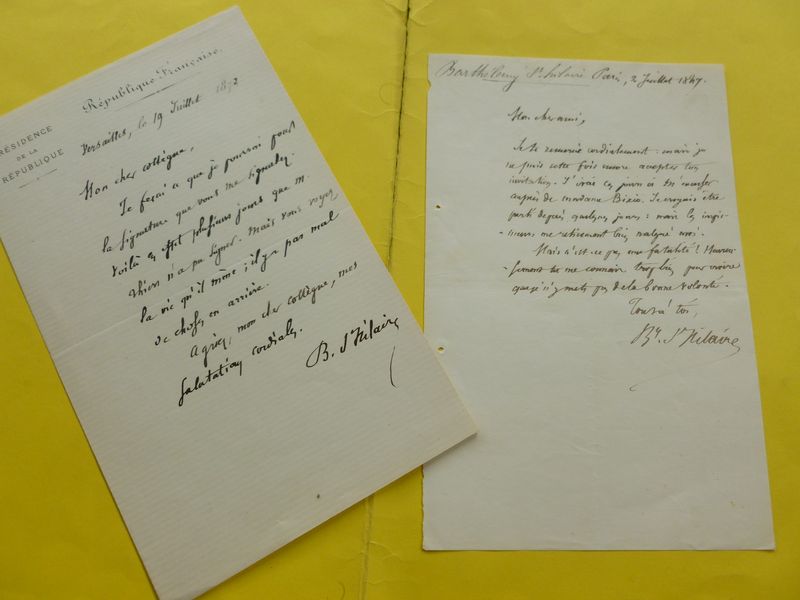 République Française.
PRÉSIDENCE
DE LA
RÉPUBLIQUE
Versailles, le 19 Juillet 1872
Mon cher collègue,
Je ferai ce que je pourrai pour
la signature que vous me signalez.
Voilà en effet plusieurs jours que M.
Thiers n'a pu signer. Mais vous voyez
la vie qu'il mène; il y a pas mal
de choses en arrière.
Agréez, mon cher collègue, mes
salutations cordiales.
B. St Hilaire
Barthélemy St hilaire Paris, 2 Juillet 1847.
Mon cher ami,
Je te remercie cordialement. mais je
ne puis cette fois encore accepter ton
invitation. J'irai ces jours-ci m'excuser
auprès de madame Bixio. Je croyais être
parti depuis quelques jours: mais les
me retiennent bien malgré moi.
Mais n'est-ce pas une fatalité! Heureu-
-sement tu me connais trop bien pour croire
que je n'y mets pas de la bonne volonté.
Tout à toi,
By. St Hilaire